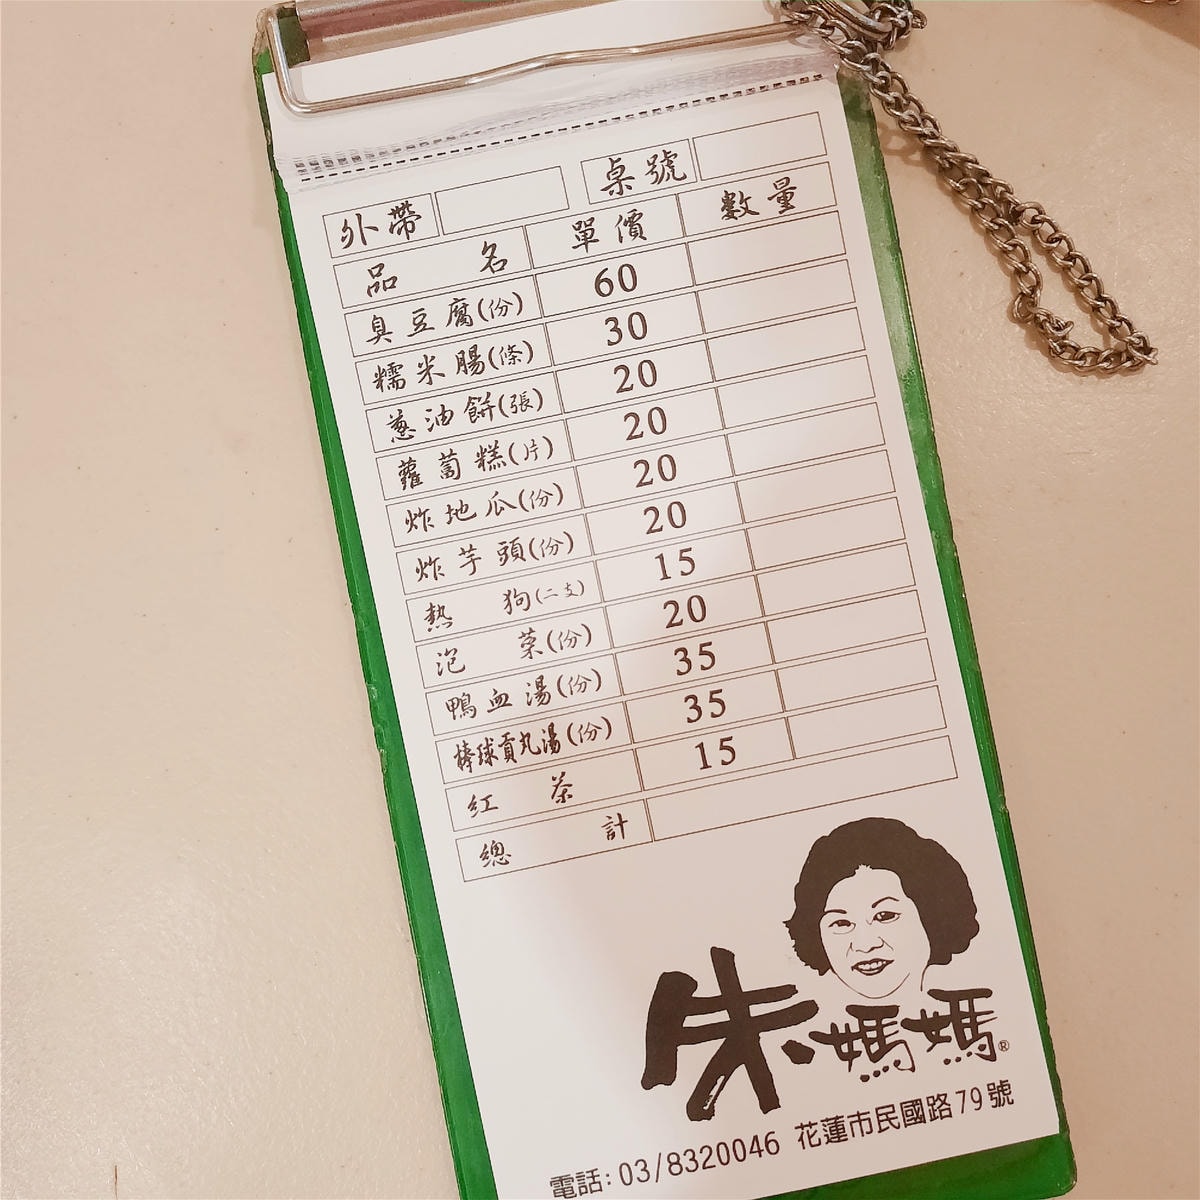 外帶 桌號
品名 單價 數量
臭豆腐(份) 60
糯米腸(條) 30
蔥油餅(張) 20
蘿蔔糕(片) 20
炸地瓜(份) 20
炸芋頭(份) 20
熱狗(二支) 15
泡菜(份) 20
鴨血湯(份) 35
棒球貢丸湯(份) 35
紅茶 15
總計
朱媽媽®
電話:03/8320046 花蓮市民國路79號